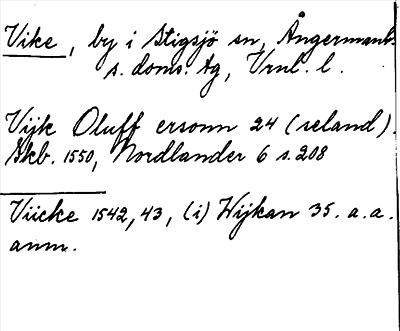 Vike, by i Stigsjö sn, Ångermanl.
s. doms. tg, Vrnl. l.
Vijk Oluff ersonn 24 (seland).
Skb. 1550, Nordlander 6 s. 208
Viicke 1542, 43, (i) Wijkan 35. a. a.
anm.